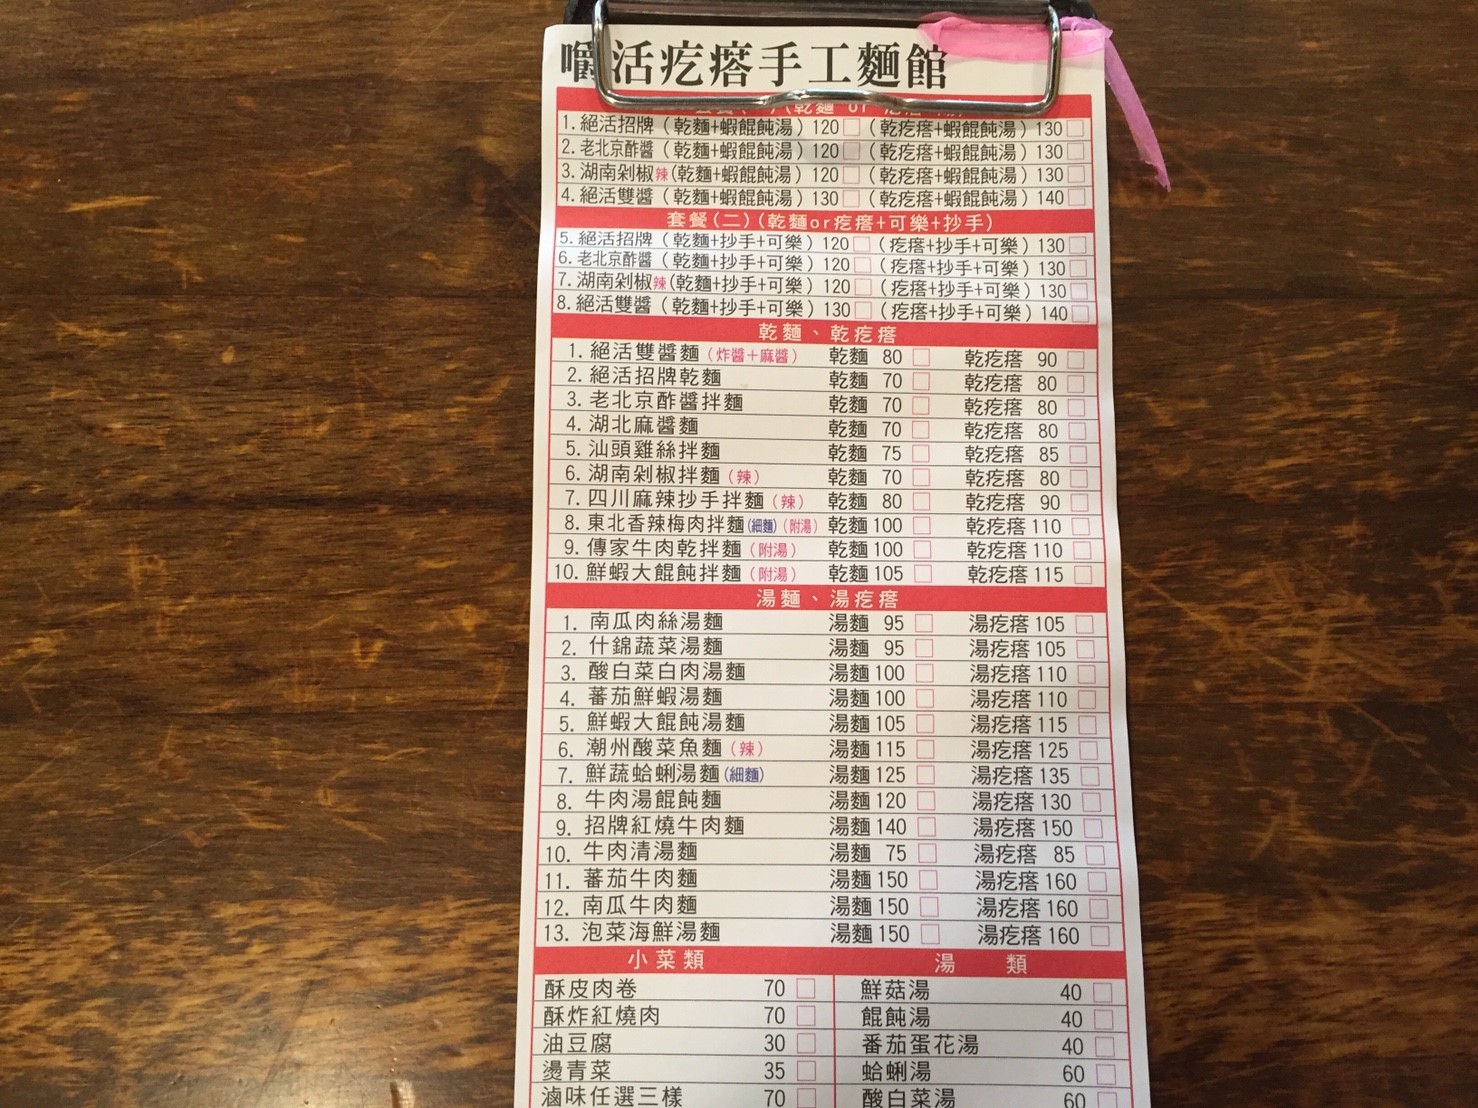 嚼活疙瘩手工麵館
1. 絕活招牌（乾麵+蝦餛飩湯）120 （乾疙瘩+蝦餛飩湯）130
2. 老北京酢醬（乾麵+蝦餛飩湯）120 （乾疙瘩+蝦餛飩湯）130
3. 湖南剁椒辣(乾麵+蝦餛飩湯）120 （乾疙瘩+蝦餛飩湯）130
4. 絕活雙醬（乾麵+蝦餛飩湯）130 （乾疙瘩+蝦餛飩湯）140
套餐(二)(乾麵or疙瘩+可樂+抄手)
5. 絕活招牌（乾麵+抄手+可樂）120 （疙瘩+抄手+可樂）130
6. 老北京酢醬（乾麵+抄手+可樂）120 （疙瘩+抄手+可樂）130
7. 湖南剁椒辣(乾麵+抄手+可樂）120 （疙瘩+抄手+可樂）130
8. 絕活雙醬（乾麵+抄手+可樂）130 （疙瘩+抄手+可樂）140
乾麵、乾疙瘩
1. 絕活雙醬麵（炸醬＋麻醬） 乾麵 80 乾疙瘩 90
2. 絕活招牌乾麵 乾麵 70 乾疙瘩 80
3. 老北京酢醬拌麵 乾麵 70 乾疙瘩 80
4. 湖北麻醬麵 乾麵 70 乾疙瘩 80
5. 汕頭雞絲拌麵 乾麵 75 乾疙瘩 85
6. 湖南剁椒拌麵（辣） 乾麵 70 乾疙瘩 80
7. 四川麻辣抄手拌麵（辣） 乾麵 80 乾疙瘩 90
8. 東北香辣梅肉拌麵(細麵)（附湯） 乾麵 100 乾疙瘩 110
9. 傳家牛肉乾拌麵（附湯） 乾麵 100 乾疙瘩 110
10. 鮮蝦大餛飩拌麵（附湯） 乾麵 105 乾疙瘩 115
湯麵、湯疙瘩
1. 南瓜肉絲湯麵 湯麵 95 湯疙瘩 105
2. 什錦蔬菜湯麵 湯麵 95 湯疙瘩 105
3. 酸白菜白肉湯麵 湯麵 100 湯疙瘩 110
4. 蕃茄鮮蝦湯麵 湯麵 100 湯疙瘩 110
5. 鮮蝦大餛飩湯麵 湯麵 105 湯疙瘩 115
6. 潮州酸菜魚麵（辣） 湯麵 115 湯疙瘩 125
7. 鮮蔬蛤蜊湯麵(細麵) 湯麵 125 湯疙瘩 135
8. 牛肉湯餛飩麵 湯麵 120 湯疙瘩 130
9. 招牌紅燒牛肉麵 湯麵 140 湯疙瘩 150
10. 牛肉清湯麵 湯麵 75 湯疙瘩 85
11. 蕃茄牛肉麵 湯麵 150 湯疙瘩 160
12. 南瓜牛肉麵 湯麵 150 湯疙瘩 160
13. 泡菜海鮮湯麵 湯麵 150 湯疙瘩 160
小菜類 湯 類
酥皮肉卷 70 鮮菇湯 40
酥炸紅燒肉 70 餛飩湯 40
油豆腐 30 番茄蛋花湯 40
燙青菜 35 蛤蜊湯 60
滷味任選三樣 70 酸白菜湯 60